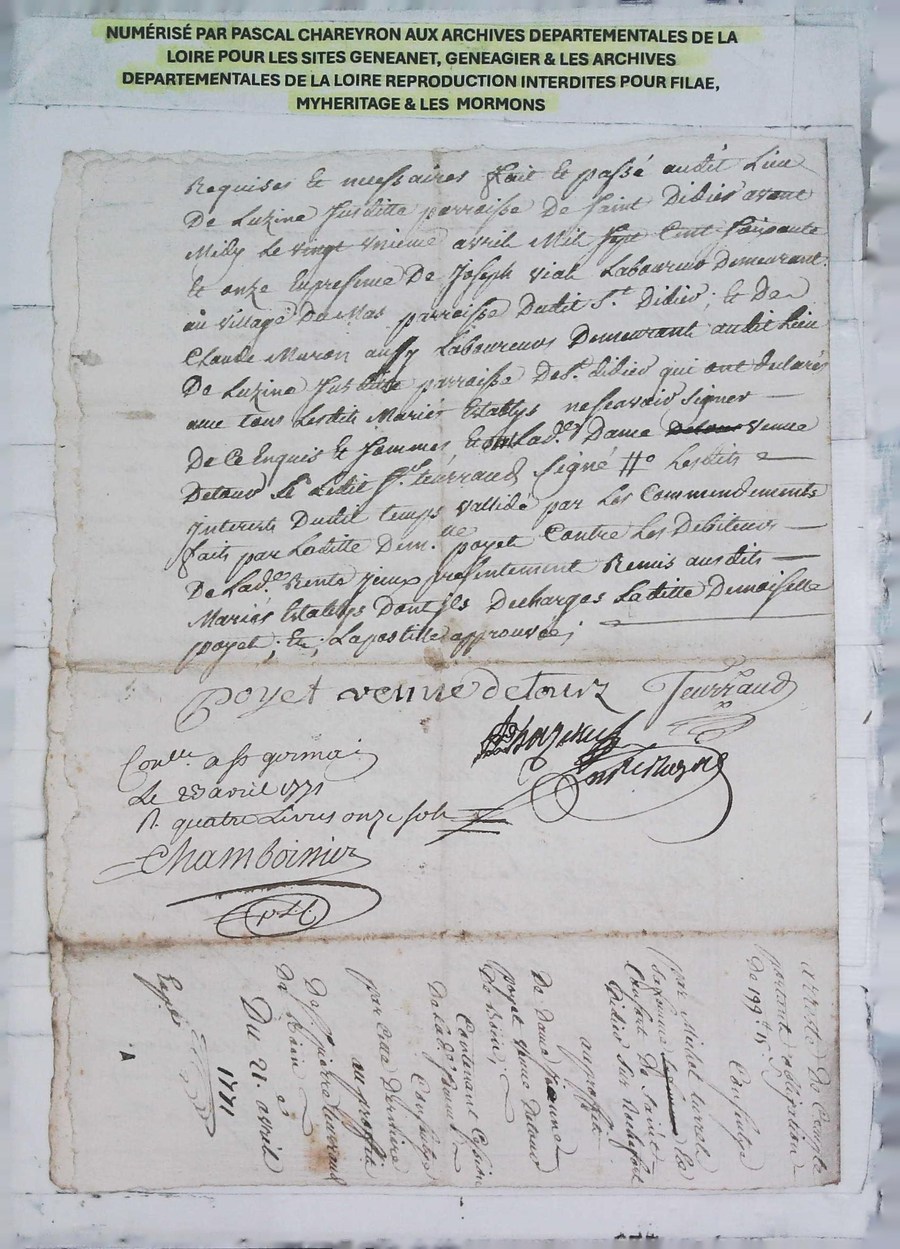 NUMÉRISÉ PAR PASCAL CHAREYRON AUX ARCHIVES DEPARTEMENTALES DE LA
LOIRE POUR LES SITES GENEANET, GENEAGIER & LES ARCHIVES
DEPARTEMENTALES DE LA LOIRE REPRODUCTION INTERDITES POUR FILAE,
MYHERITAGE & LES MORMONS
Requises Et necessaires fait Et passé audit Lieu
De Luzine susditte parroisse De Saint Didier avant
Midy Le vingt unieme avril Mil Sept Cent Soixante
Et onze En presence De Joseph vial Laboureur Demeurant
au village Du Mas parroisse Dudit St. Didier; Et De
Claude Muron aussy Laboureurs Demeurant audit Lieu
De Luzine susditte parroisse De St. didier qui ont declarés
avec tous Lesdits Mariés Establys ne scavoir signer —
De Ce Enquis Et sommés Et Lad.e Dame Detour veuve
Detour Et Ledit Sr. teurraud signé Lesdits
Interets Dudit temps vallidé par Les Commendements
faits par Laditte Dem.lle poyet Contre Les Debiteurs —
De Lad.e Rente Iceux presentement Remis ausdits —
Mariés Establys Dont ils Decharges Laditte Demoiselle
poyet; Et; Lapostille approuvée;
Poyet veuve detour Teurraud
Con.lle a St germai
Le 23 avril 1771
R. quatre Livres onze sols
Chamboinier
arreste De Compte
portant obligation
De 199 15
Consulze
par Michel
sa femme Les
Consorts De Saint
Didier sur Rochefort
au proffit
De Dame jeanne
poyet veuve Detour
De Boin;
Contenant Cession
De Lad.e somme
Consulze
par Cette Derniere
au proffit
De Sr pierre teurraud
De Boin
Du 21. avril
1771
Exp.ée
A